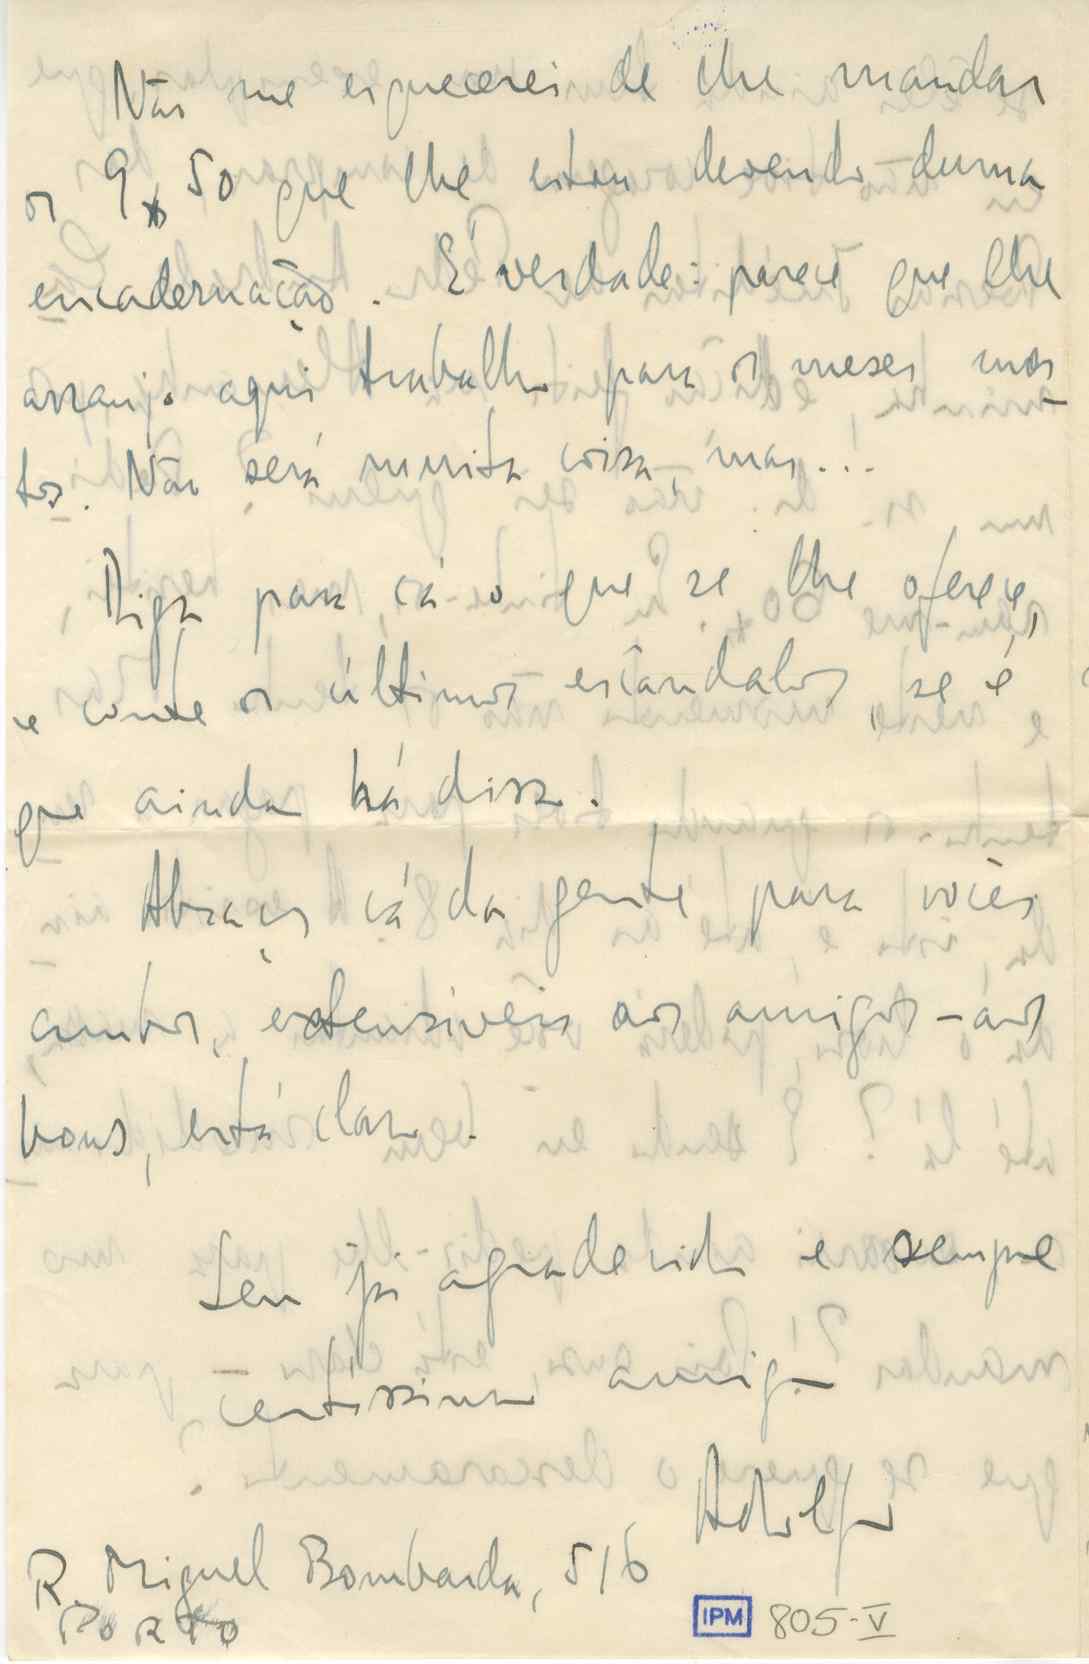 Não me esquecerei de lhe mandar
os 9$50 que lhe estou devendo duma
encadernação. É verdade: parece que lhe
arranjo aqui trabalho para os meses mor-
tos. Não será muita coisa, mas...
Diga para cá o que se lhe oferece,
e conte os últimos escândalos, se é
que ainda há disso.
Abraços cá da gente para vocês
ambos, extensíveis aos amigos – aos
bons, está claro.
Seu já agradecido e sempre
certíssimo amigo
Adolfo
R. Miguel Bombarda, 516
PORTO
IPM 805-V